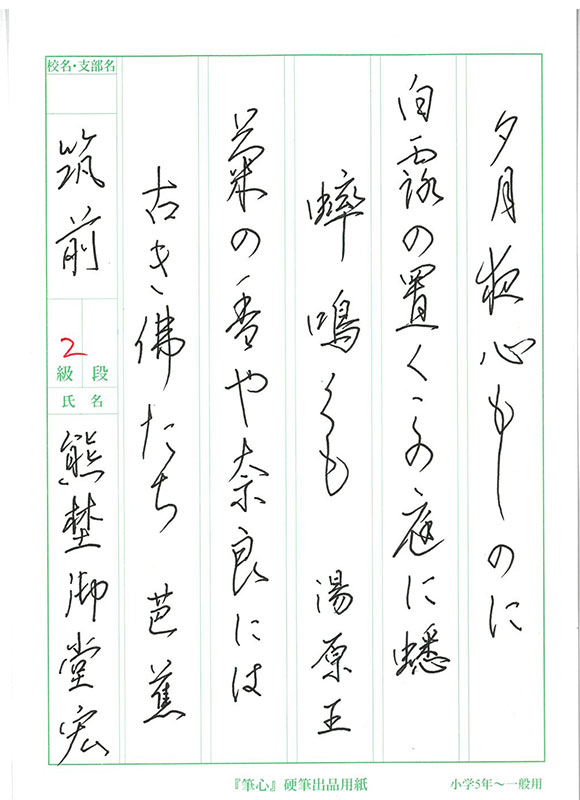 夕月夜心もしのに
白露の置くこの庭に蟋
蟀鳴くも　湯原王
菊の香や奈良には
古き佛たち　芭蕉
校名・支部名
筑前
2
級　段
氏　名
熊埜御堂宏
『筆心』硬筆出品用紙
小学5年～一般用